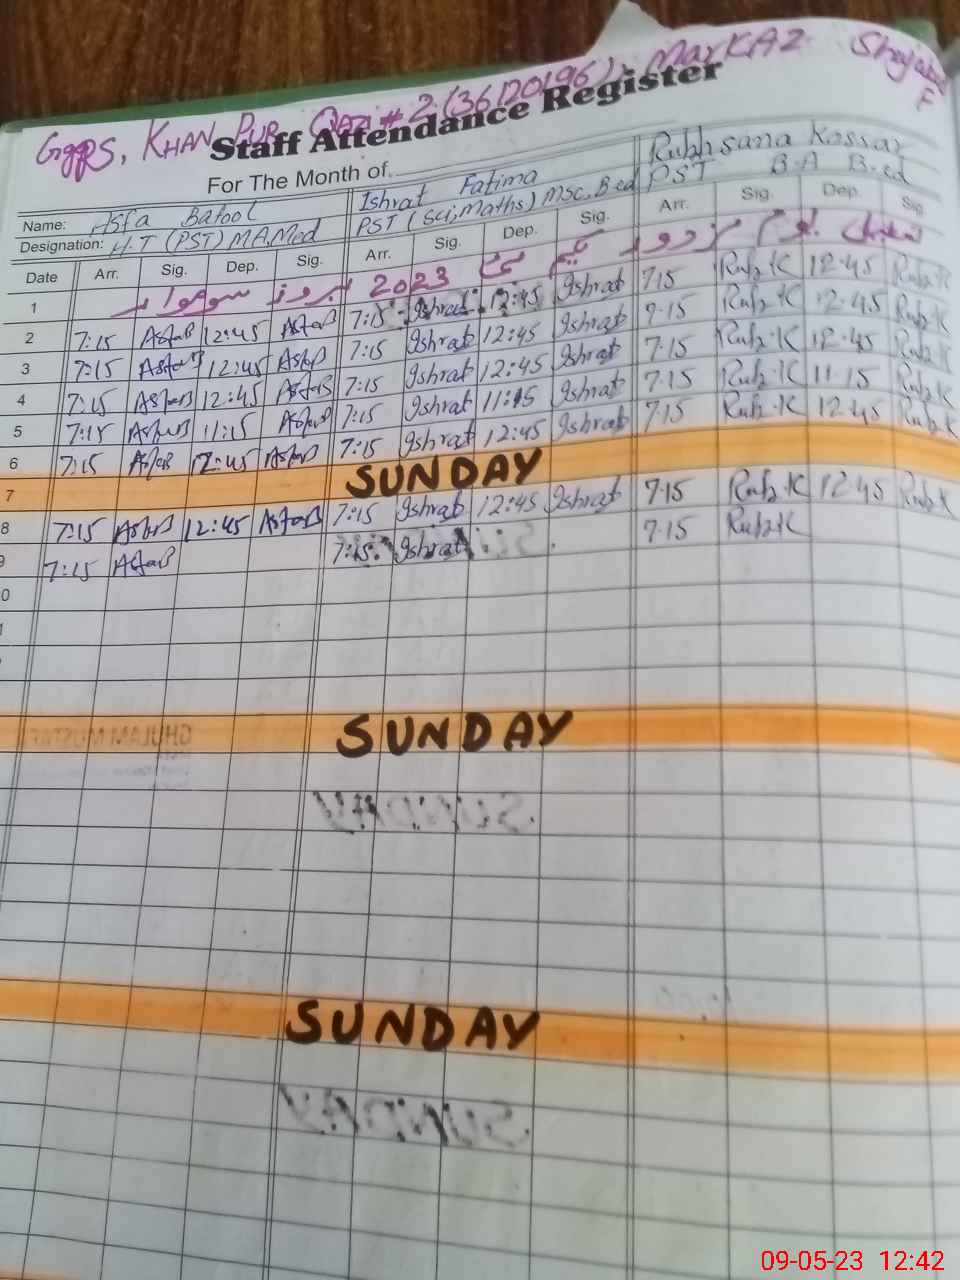 GGPS, KHAN PUR QAZI # 2 (36120196), MARKAZ Shujabad
F
Staff Attendance Register
For The Month of
Name: Asfa Batool Ishrat Fatima Rukhsana Kossar
Designation: H.T (PST) MA,Med PST (Sci,Maths) Msc, B.ed PST B.A B.ed
Date Arr. Sig. Dep. Sig. Arr. Sig. Dep. Sig. Arr. Sig. Dep. Sig.
1 تعطیل یوم مزدور یکم مئی 2023 بروز سوموار
2 7:15 AsfaB 12:45 AsfaB 7:15 Ishrat 12:45 Ishrat 7:15 Rukh.K 12:45 Rukh.K
3 7:15 AsfaB 12:45 AsfaB 7:15 Ishrat 12:45 Ishrat 7:15 Rukh.K 12:45 Rukh.K
4 7:15 AsfaB 12:45 AsfaB 7:15 Ishrat 12:45 Ishrat 7:15 Rukh.K 12:45 Rukh.K
5 7:15 AsfaB 11:15 AsfaB 7:15 Ishrat 11:15 Ishrat 7:15 Rukh.K 11:15 Rukh.K
6 7:15 AsfaB 12:45 AsfaB 7:15 Ishrat 12:45 Ishrat 7:15 Rukh.K 12:45 Rukh.K
7 SUNDAY
8 7:15 AsfaB 12:45 AsfaB 7:15 Ishrat 12:45 Ishrat 7:15 Rukh.K 12:45 Rukh.K
9 7:15 AsfaB 7:15 Ishrat 7:15 Rukh.K
0
1
SUNDAY
SUNDAY
09-05-23 12:42